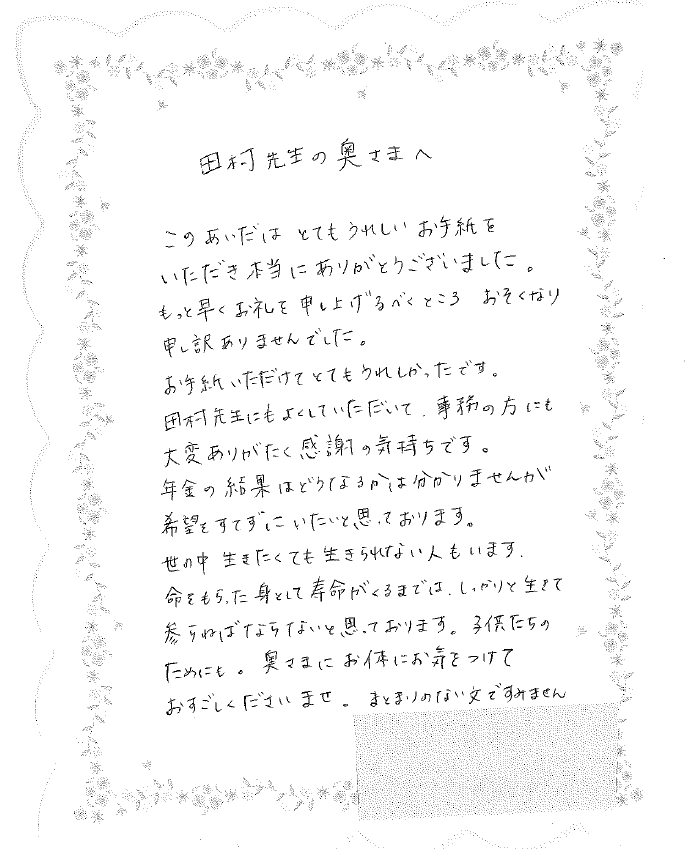 田村先生の奥さまへ
このあいだは とてもうれしい お手紙を
いただき本当にありがとうございました。
もっと早くお礼を申し上げるべくところ おそくなり
申し訳ありませんでした。
お手紙いただけてとてもうれしかったです。
田村先生にもよくしていただいて、事務の方にも
大変ありがたく感謝の気持ちです。
年金の結果はどうなるかは分かりませんが
希望をすてずにいたいと思っております。
世の中 生きたくても生きられない人もいます、
命をもらった身として寿命がくるまでは、しっかりと生きて
参らねばならないと思っております。子供たちの
ためにも。奥さまにお体にお気をつけて
おすごしくださいませ。まとまりのない文ですみません